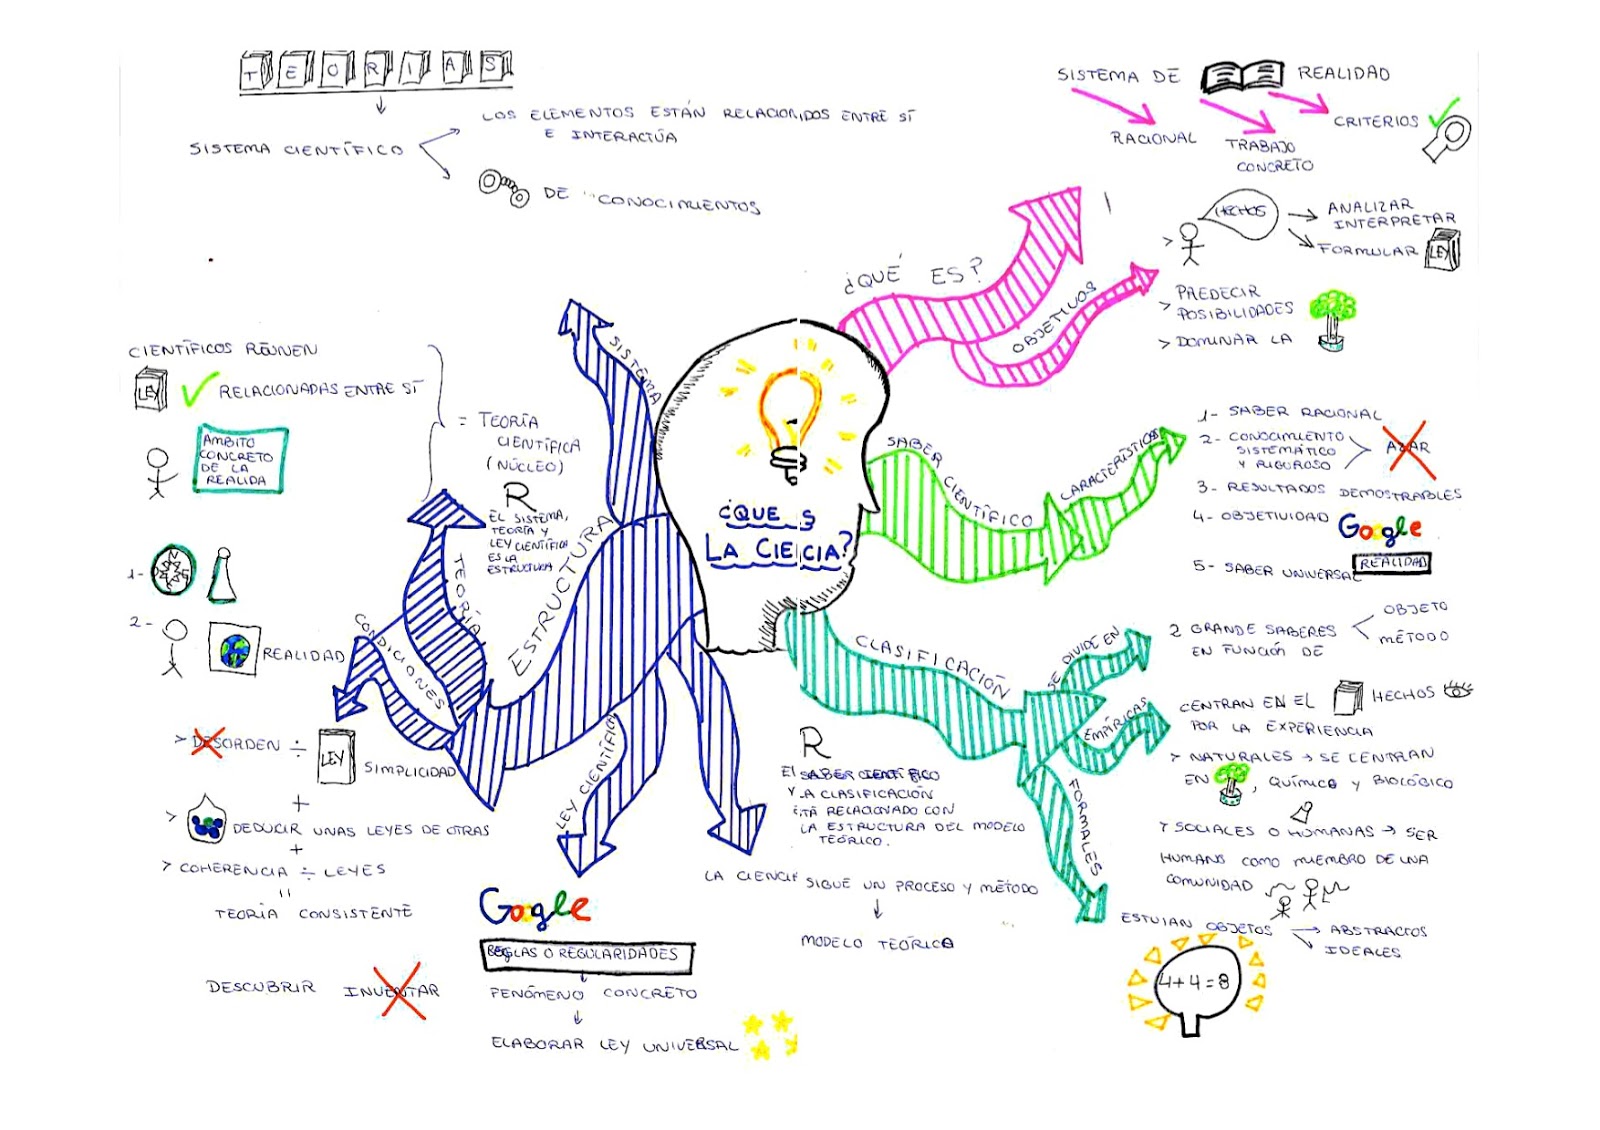 TEORIAS
SISTEMA CIENTÍFICO
LOS ELEMENTOS ESTÁN RELACIONADOS ENTRE SÍ
E INTERACTÚA
DE CONOCIMIENTOS
SISTEMA DE REALIDAD
RACIONAL
TRABAJO
CONCRETO
CRITERIOS
¿QUÉ ES?
OBJETIVOS
HECHOS
ANALIZAR
INTERPRETAR
FORMULAR LEY
> PREDECIR
POSIBILIDADES
> DOMINAR LA
¿QUE S
LA CIECIA?
SABER CIENTÍFICO
CARACTERÍSTICAS
1- SABER RACIONAL
2- CONOCIMIENTO
SISTEMÁTICO
Y RIGUROSO
AZAR
3- RESULTADOS DEMOSTRABLES
4- OBJETIVIDAD Google
REALIDAD
5- SABER UNIVERSAL
CLASIFICACIÓN
SE DIVIDE EN
2 GRANDE SABERES
EN FUNCIÓN DE
OBJETO
MÉTODO
EMPÍRICAS
CENTRAN EN EL HECHOS
POR LA EXPERIENCIA
> NATURALES → SE CENTRAN
EN , QUÍMICO Y BIOLÓGICO
> SOCIALES O HUMANAS → SER
HUMANS COMO MIEMBRO DE UNA
COMUNIDAD
FORMALES
ESTUIAN OBJETOS → ABSTRACTOS
IDEALES
4+4=8
R
El SABER CIENTÍFICO
Y LA CLASIFICACIÓN
RELACIONADO CON
LA ESTRUCTURA DEL MODELO
TEÓRICO.
LA CIENCIA SIGUE UN PROCESO Y MÉTODO
MODELO TEÓRICO
SISTEMA
ESTRUCTURA
TEORÍA
CONDICIONES
LEY CIENTÍFICA
CIENTÍFICOS REÚNEN
LEY RELACIONADAS ENTRE SÍ
AMBITO
CONCRETO
DE LA
REALIDA
= TEORÍA
CIENTÍFICA
(NÚCLEO)
R
EL SISTEMA,
TEORÍA Y
LEY CIENTÍFICA
ES LA
ESTRUCTURA
1-
2- REALIDAD
> DESORDEN ÷ LEY SIMPLICIDAD
+
> DEDUCIR UNAS LEYES DE OTRAS
+
> COHERENCIA ÷ LEYES
"
TEORÍA CONSISTENTE
DESCUBRIR INVENTAR
Google
REGLAS O REGULARIDADES
FENÓMENO CONCRETO
ELABORAR LEY UNIVERSAL